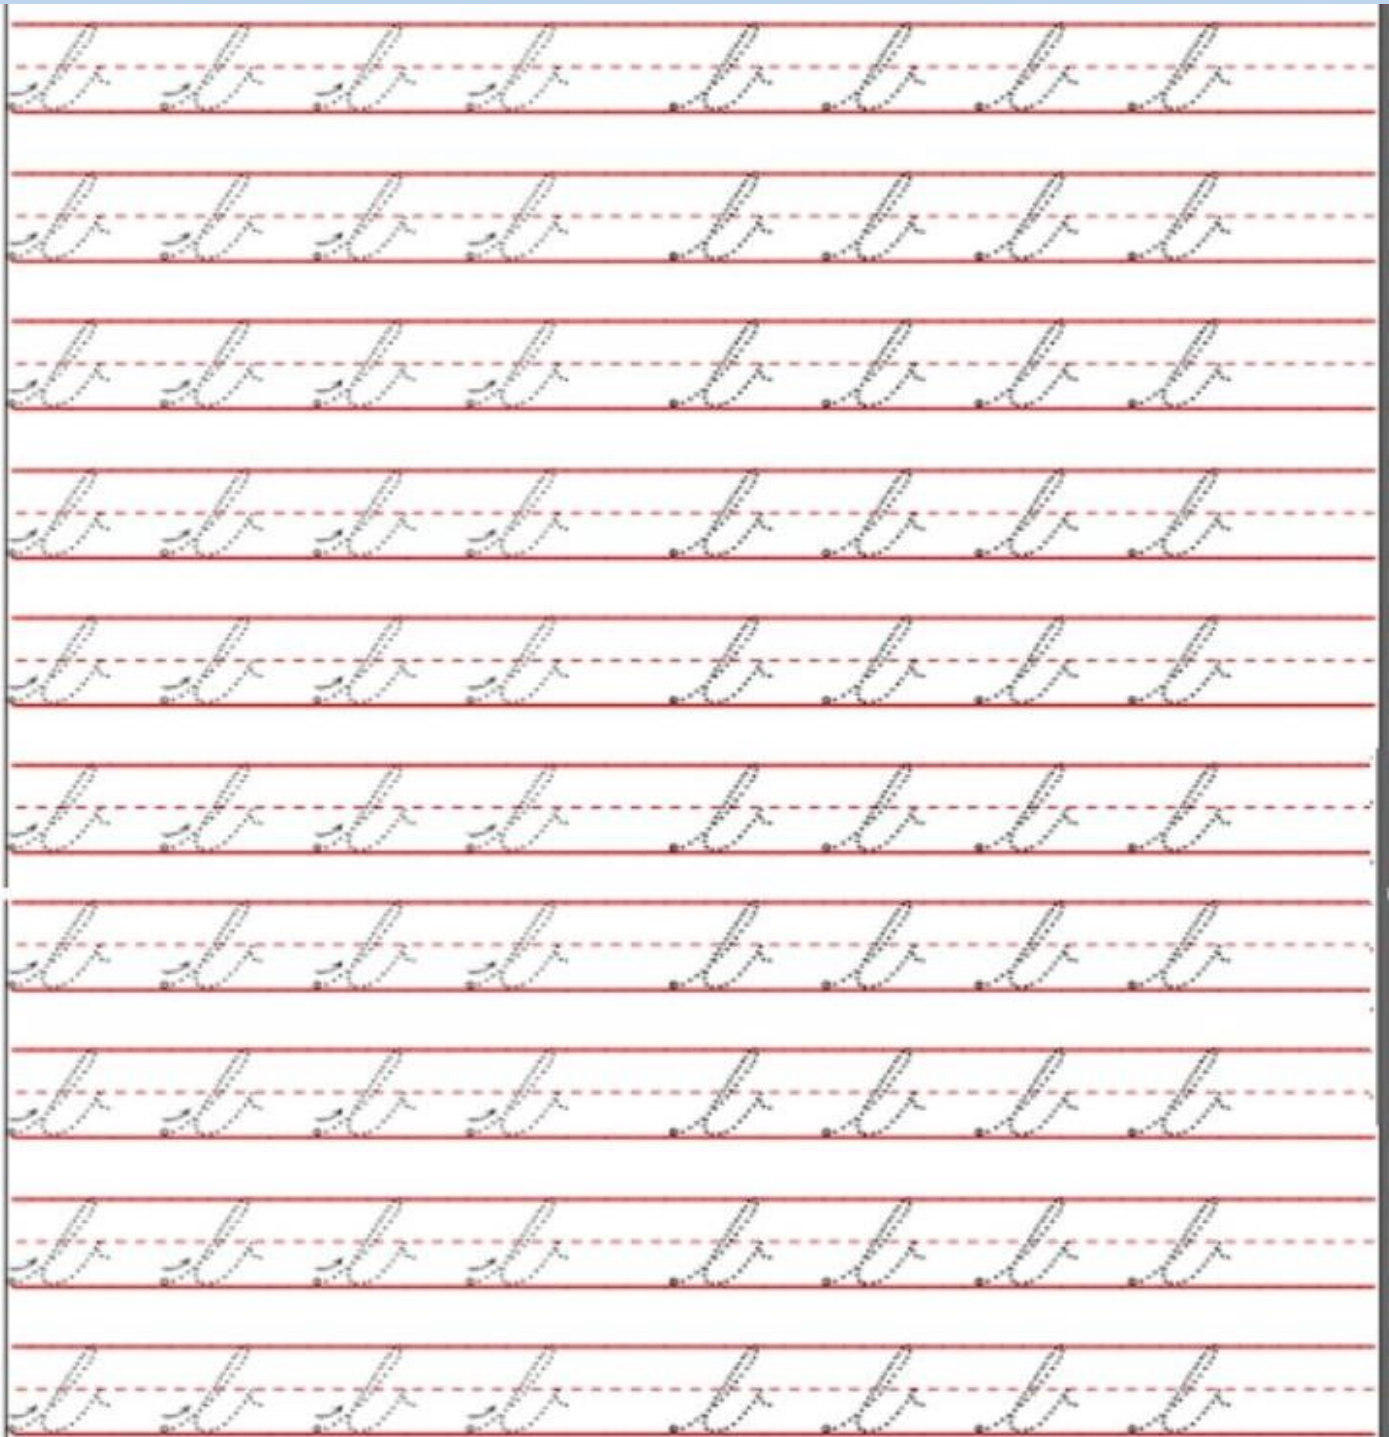 b b b b b b b b
b b b b b b b b
b b b b b b b b
b b b b b b b b
b b b b b b b b
b b b b b b b b
b b b b b b b b
b b b b b b b b
b b b b b b b b
b b b b b b b b